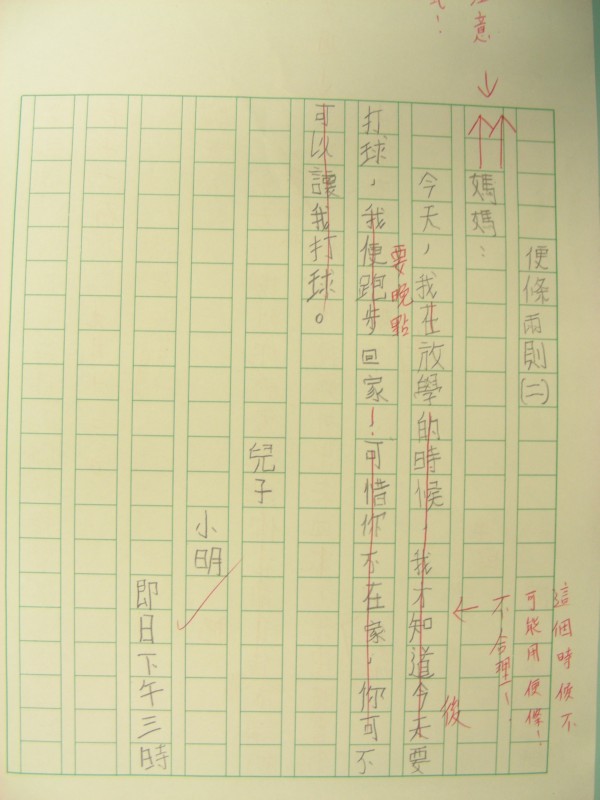 這個時候不
可能用便條！
不合理！
便條兩則(二)
意
媽媽：
後
今天，我在放學的時候，我才知道今天要
要晚點
打球，我便跑步回家！可惜你不在家，你可不
可以讓我打球。
兒子
小明
即日下午三時